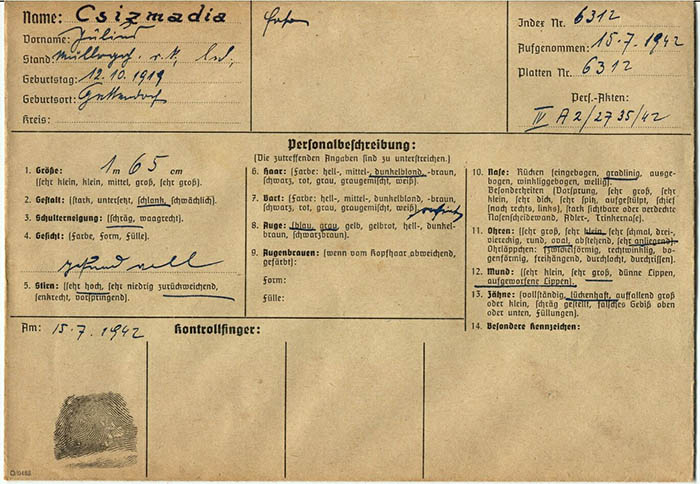 Name: Csizmadia
Vorname: Julius
Stand: r. k., led.,
Geburtstag: 12.10.1919
Geburtsort: Gattendorf
Kreis:
Index Nr. 6312
Aufgenommen: 15.7.1942
Platten Nr. 6312
Pers.-Akten:
IV A2/2735/42
Personalbeschreibung:
(Die zutreffenden Angaben sind zu unterstreichen.)
1. Größe: 1 m 65 cm
(sehr klein, klein, mittel, groß, sehr groß).
2. Gestalt: (stark, untersetzt, schlank, schwächlich).
3. Schulterneigung: (schräg, waagrecht).
4. Gesicht: (Farbe, Form, Fülle).
gesund voll
5. Stirn: (sehr hoch, sehr niedrig zurückweichend,
senkrecht, vorspringend).
6. Haar: (Farbe: hell-, mittel-, dunkelblond, -braun,
schwarz, rot, grau, graugemischt, weiß).
7. Bart: (Farbe: hell-, mittel-, dunkelblond, -braun,
schwarz, rot, grau, graugemischt, weiß)
8. Auge: (blau, grau, gelb, gelbrot, hell-, dunkel-
braun, schwarzbraun).
9. Augenbrauen: (wenn vom Kopfhaar abweichend,
gefärbt):
Form:
Fülle:
10. Nase: Rücken (eingebogen, gradlinig, ausge-
bogen, winkliggebogen, wellig).
Besonderheiten (Vorsprung, sehr groß, sehr
klein, sehr dick, sehr spitz, aufgestülpt, schief
nach rechts, links), stark sichtbare oder verdeckte
Nasenscheidewand, Adler-, Trinkernase).
11. Ohren: (sehr groß, sehr klein, sehr schmal, drei-,
viereckig, rund, oval, abstehend, sehr anliegend)
Ohrläppchen: (zwickelförmig, rechtwinklig, bo-
genförmig, freihängend, durchlocht, durchrissen).
12. Mund: (sehr klein, sehr groß, dünne Lippen,
aufgeworfene Lippen).
13. Zähne: (vollständig, lückenhaft, auffallend groß
oder klein, schräg gestellt, falsches Gebiß oben
oder unten, Füllungen).
14. Besondere Kennzeichen:
Am: 15.7.1942
Kontrollfinger: